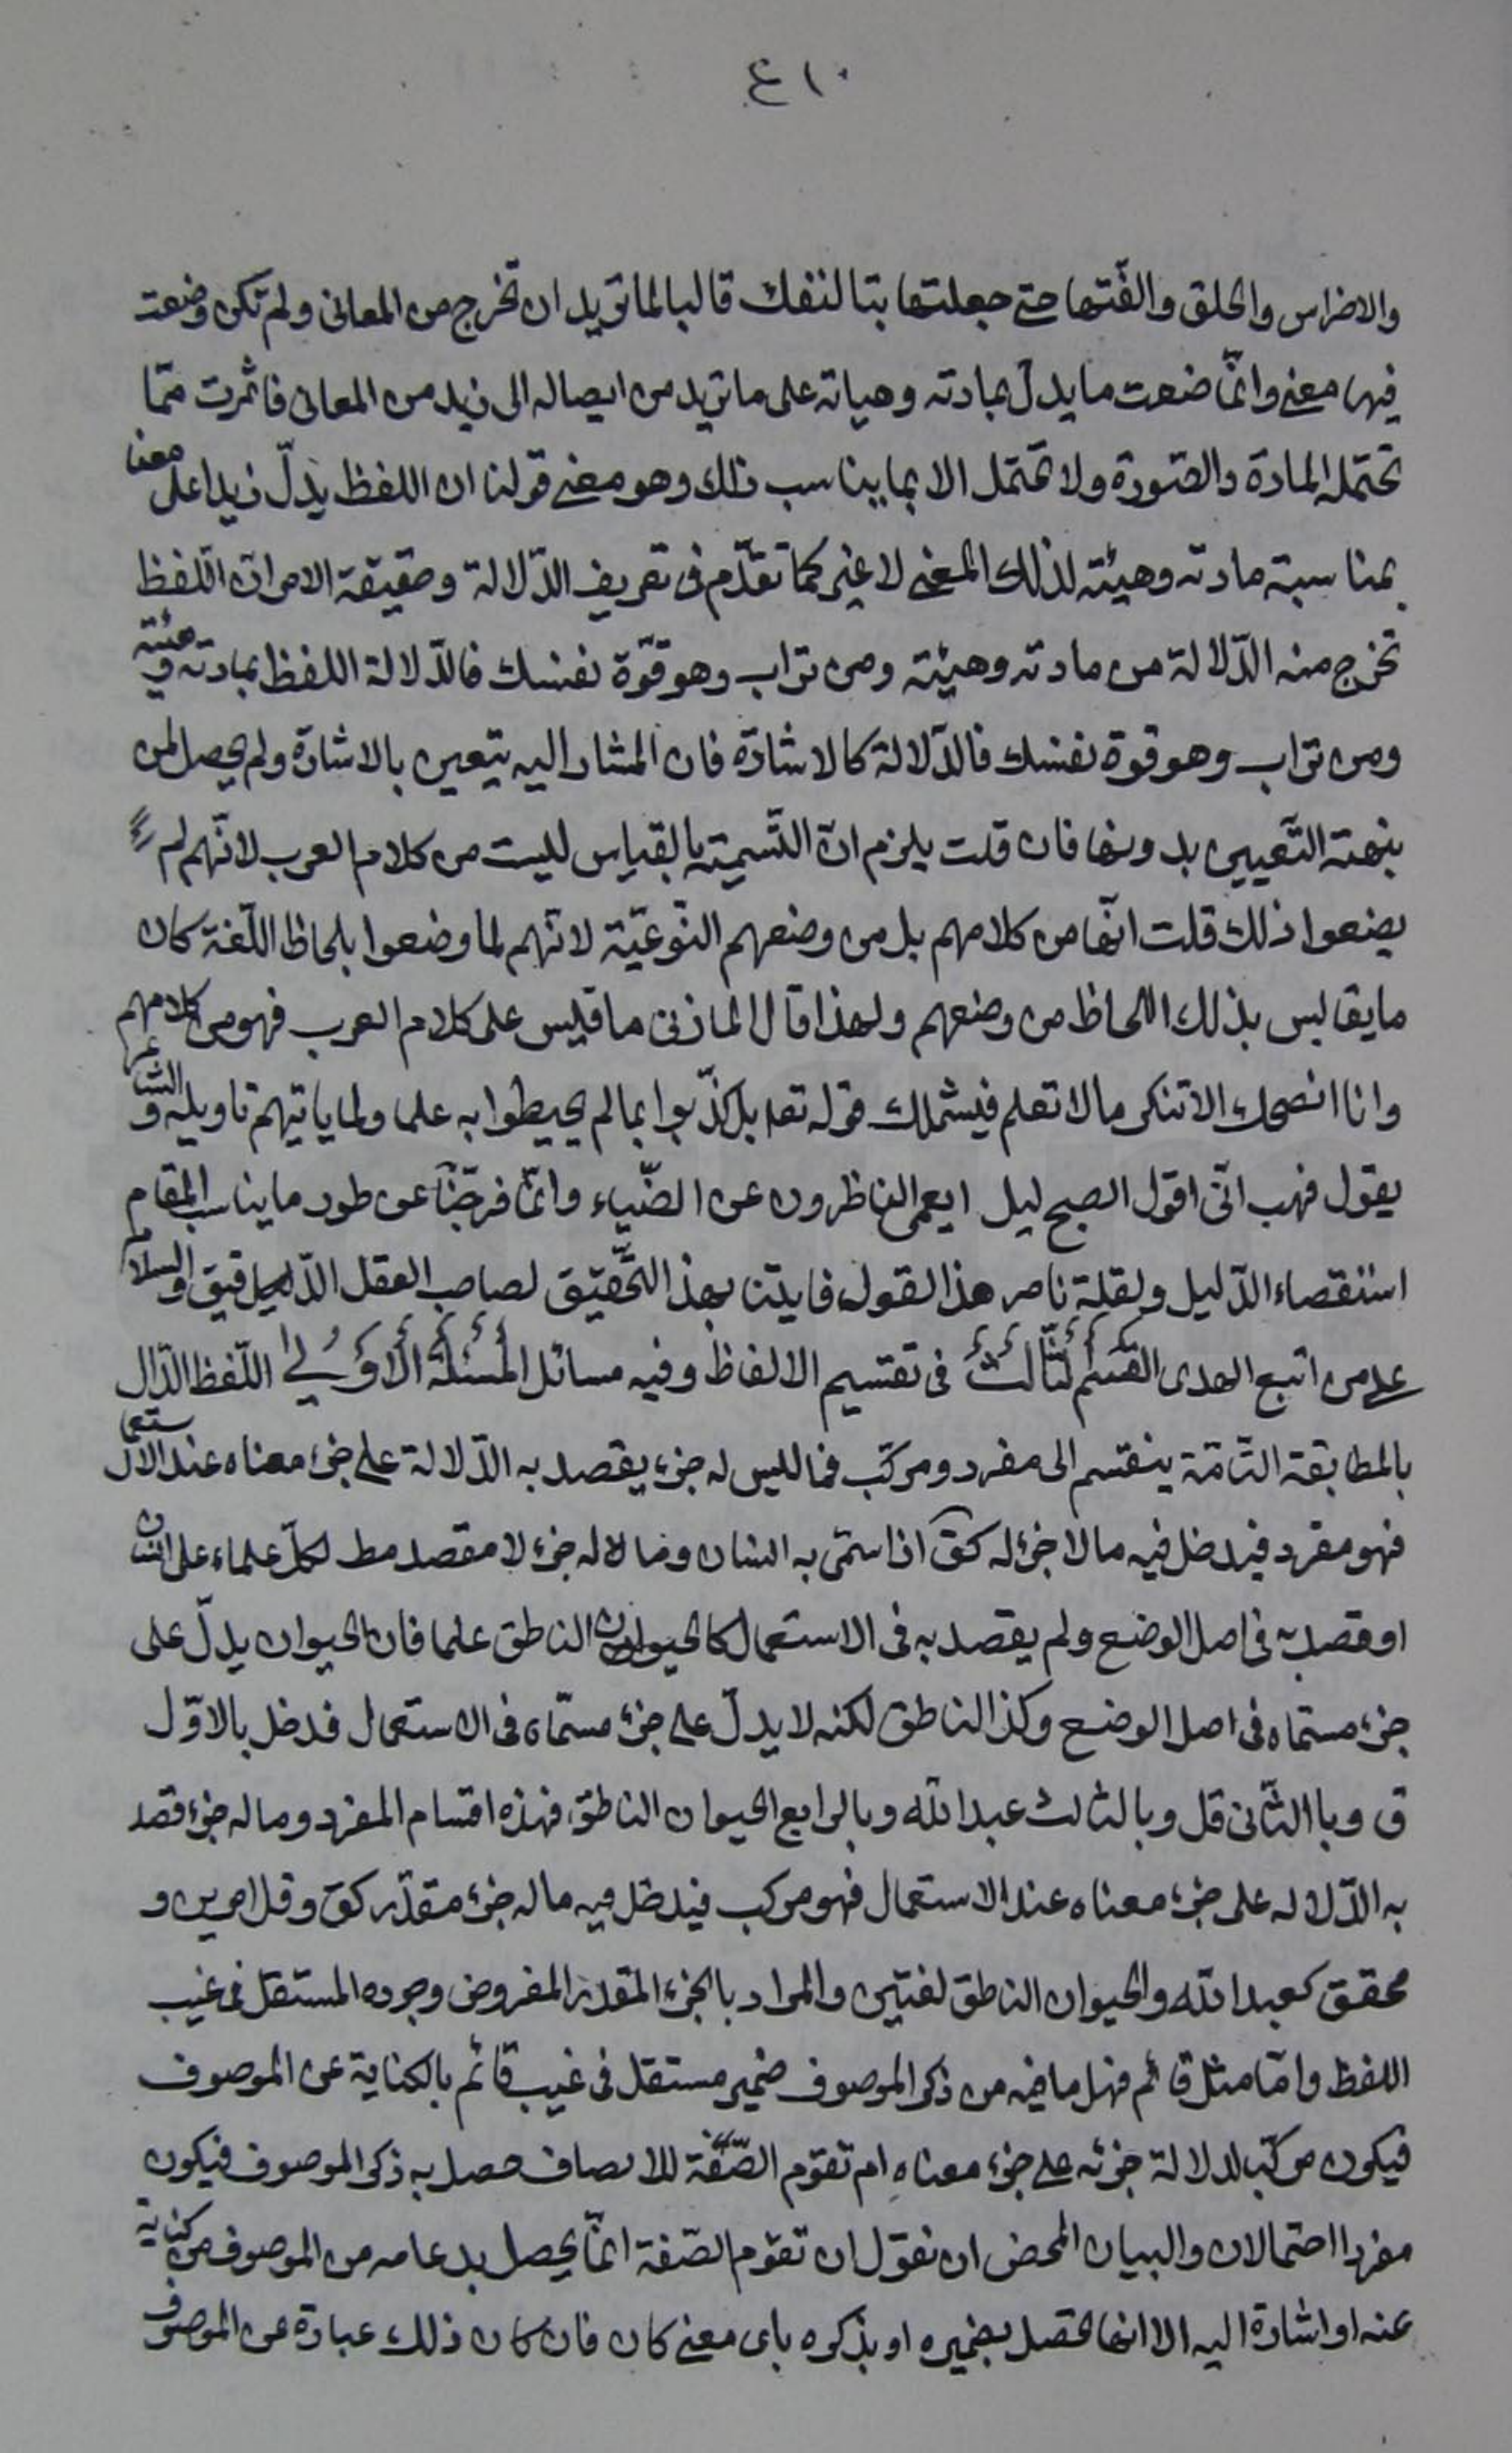 ٤١٠
والاضراس والحلق والفّتها حتى جعلتها بتا لنفك قالبا لما تريد ان تخرج من المعانى ولم تكن وضعت
فيها معنى وانّما ضعت ما يدل بمادته وهياته على ما تريد من ايصاله الى زيد من المعانى فاثمرت ممّا
تحتمله المادة والصّورة ولا تحتمل الا بما يناسب ذلك وهو معنى قولنا ان اللفظ يدلّ زيدا على معنا
بمناسبة مادته وهيئته لذلك المعنى لا غير كما تقدّم فى تعريف الدّلالة وحقيقة الامر انّ اللفظ
تخرج منه الدّلالة من مادته وهيئته ومن تراب وهو قوّة نفسك فالدّلالة اللفظ بمادته وهيئته
ومن تراب وهو قوة نفسك فالدّلالة كالاشارة فان المشار اليه يتعين بالاشارة ولم يحصل لمن
بنهته التّعيين بدونها فان قلت يلزم انّ التّسمية بالقياس ليست من كلام العرب لانّهم لم
يضعوا ذلك قلت انّها من كلامهم بل من وضعهم النّوعيّة لانّهم لما وضعوا بلحاظ اللّغة كان
ما يقاليس بذلك اللحاظ من وضعهم ولهذا قال المازنى ما قليس على كلام العرب فهو من كلامهم
وانا انصحك الا تنكر ما لا تعلم فيشملك قوله تعه بل كذّبوا بما لم يحيطوا به علما ولما ياتيهم تاويله والشاعر
يقول فهب انّى اقول الصبح ليل ايعمى الناظرون عن الضّياء وانّما فرجنا عن طور ما يناسب المقام
استقصاء الدّليل ولقلة ناصر هذا القول فايدنا بهذ التّحقيق لصاحب العقل الدّقيق والسلام
على من اتبع الهدى القسم الثّالث فى تقسيم الالفاظ وفيه مسائل المسئلة الاولى اللّفظ الدّال
بالمطابقة التّامّة ينقسم الى مفرد ومركّب فما لليس له جزء يقصد به الدّلالة على جزء معناه عند الاستعمال
فهو مفرد فيدخل فيه ما لا جزء له كقَ اذا سمّى به انسان وما لاله جزء لا مقصد مط لكلّ علماء على انسان
او قصد به فى اصل الوضع ولم يقصد به فى الاستعمال كالحيوان الناطق علما فان الحيوان يدلّ على
جزء مستماه فى اصل الوضع وكذ الناطق لكنه لا يدلّ على جزء مسمّاه فى الاستعمال فدخل بالاوّل
ق وبا الثّانى قل وبالثالث عبد الله وبالرابع الحيوان الناطق فهذه اقسام المفرد وما له جزء قصد
به الدّلاله على جزء معناه عند الاستعمال فهو مركب فيدخل فيه ما له جزء مقدّر كق وقل امرين و
محقق كعبد الله والحيوان الناطق لغتين والمراد بالجزء المقدّر المفروض وجوده المستقل فى غيب
اللفظ وامّا مثل قائم فهل ما فيه من ذكر الموصوف ضمير مستقل فى غيب قائم بالكناية عن الموصوف
فيكون مركّب لدلالة جزئه على جزء معناه ام تقوم الصّفة للاتصاف حصل به ذكر الموصوف فيكون
مفردا احتمالان والبيان المحض ان نقول ان تقوم الصّفة انّما يحصل بدعامه من الموصوف من كناية
عنه او اشارة اليه الا انها تحصل بضميره او بذكره باى معنى كان فان كان ذلك عبارة عن الموصوف